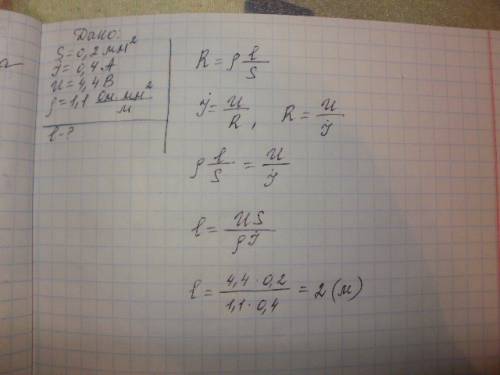 Дано:
S=0,2 мм²
I=0,4 А
U=4,4 В
ρ=1,1 Ом·мм²/м
l-?
R = ρ l/S
I = U/R, R = U/I
ρ l/S = U/I
l = US/ρI
l = 4,4·0,2/1,1·0,4 = 2 (м)